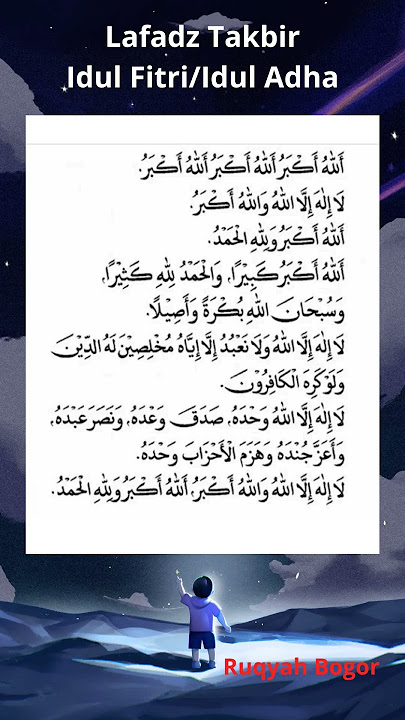 Lafadz Takbir
Idul Fitri/Idul Adha
اَللهُ أَكْبَرُ اَللهُ أَكْبَرُ اَللهُ أَكْبَرُ.
لَا إِلٰهَ إِلَّا اللهُ وَاللهُ أَكْبَرُ.
اَللهُ أَكْبَرُ وَلِلّٰهِ الْحَمْدُ.
اَللهُ أَكْبَرُ كَبِيْرًا، وَالْحَمْدُ لِلّٰهِ كَثِيْرًا،
وَسُبْحَانَ اللهِ بُكْرَةً وَأَصِيْلًا.
لَا إِلٰهَ إِلَّا اللهُ وَلَا نَعْبُدُ إِلَّا إِيَّاهُ مُخْلِصِيْنَ لَهُ الدِّيْنَ
وَلَوْكَرِهَ الْكَافِرُوْنَ.
لَا إِلٰهَ إِلَّا اللهُ وَحْدَهُ، صَدَقَ وَعْدَهُ، وَنَصَرَ عَبْدَهُ،
وَأَعَزَّ جُنْدَهُ وَهَزَمَ الْأَحْزَابَ وَحْدَهُ.
لَا إِلٰهَ إِلَّا اللهُ وَاللهُ أَكْبَرُ، اَللهُ أَكْبَرُ وَلِلّٰهِ الْحَمْدُ.
Ruqyah Bogor